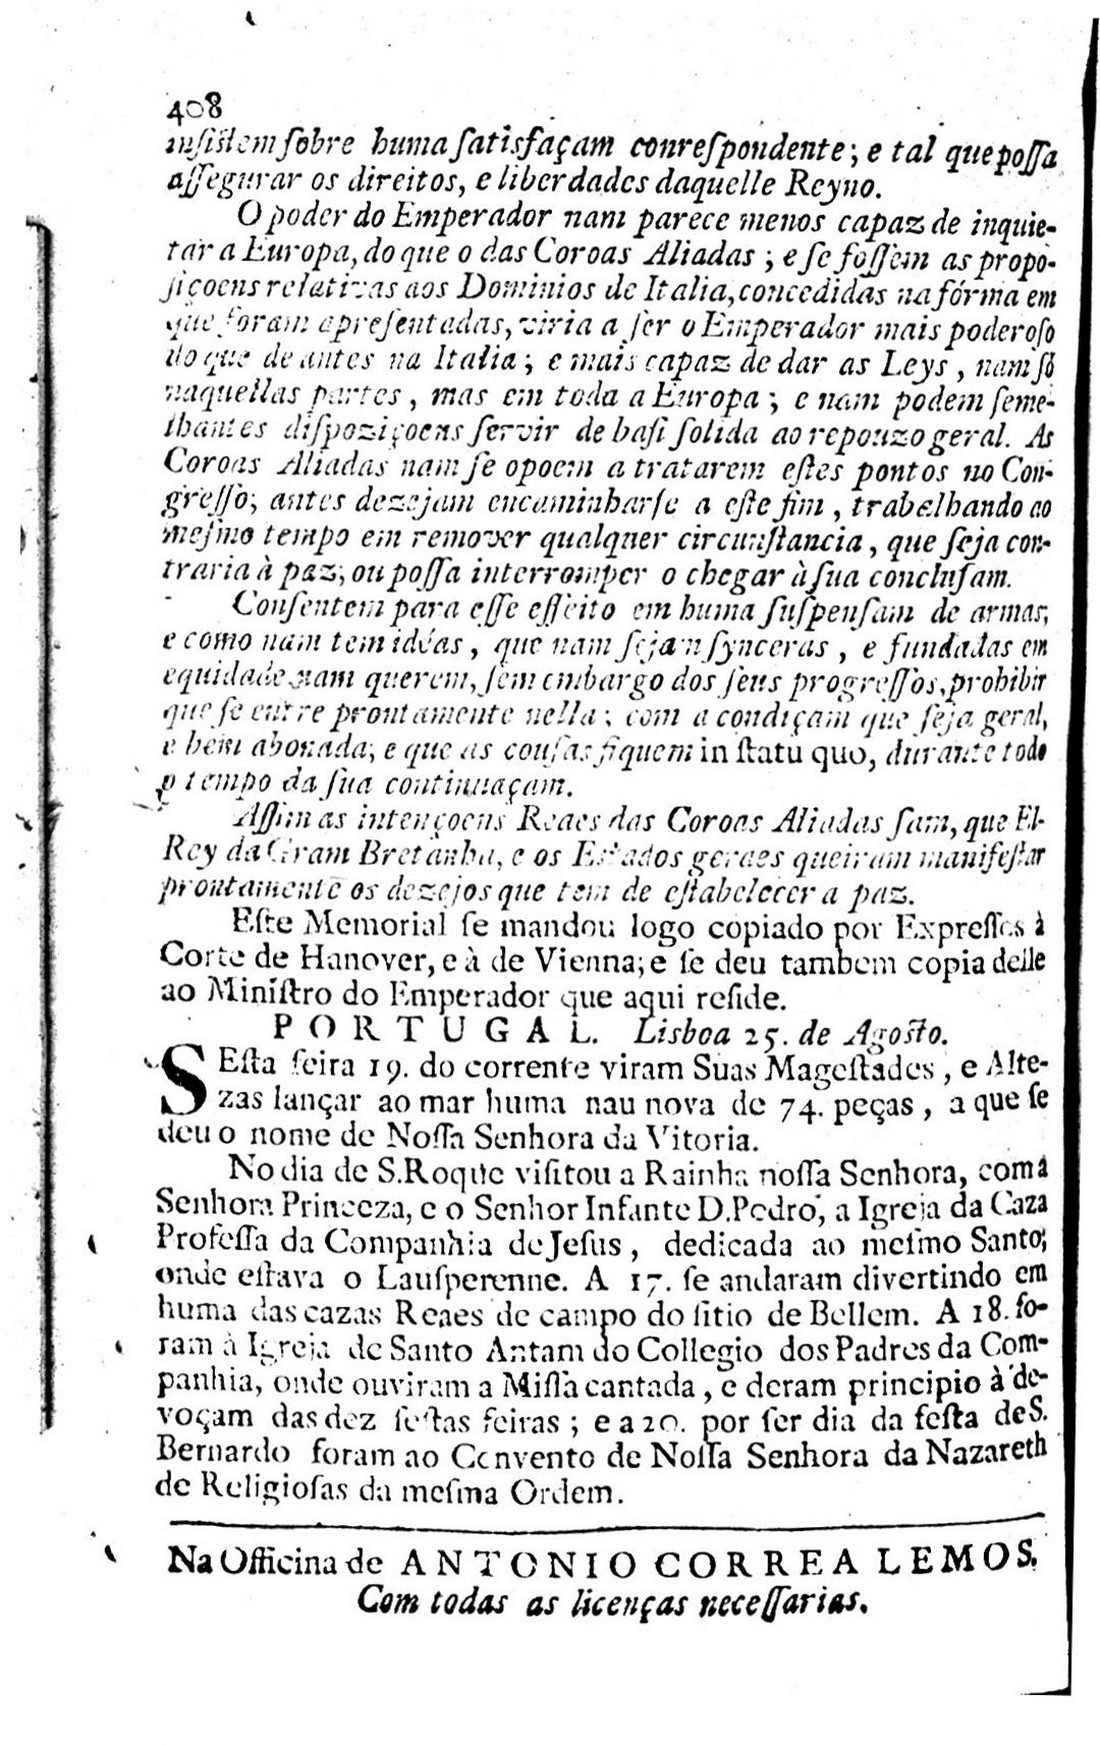 408
insistem sobre huma satisfaçam conrespondente; e tal que possa
assegurar os direitos, e liberdades daquelle Reyno.
O poder do Emperador nam parece menos capaz de inquie-
tar a Europa, do que o das Coroas Aliadas; e se fossem as propo-
siçoens relativas aos Dominios de Italia, concedidas na fórma em
que foram apresentadas, viria a ser o Emperador mais poderoso
do que de antes na Italia; e mais capaz de dar as Leys, nam só
naquellas partes, mas em toda a Europa; e nam podem seme-
lhantes dispoziçoens servir de basi solida ao repouzo geral. As
Coroas Aliadas nam se opoem a tratarem estes pontos no Con-
gresso; antes dezejam encaminharse a este fim, trabalhando ao
mesmo tempo em remover qualquer circunstancia, que seja con-
traria à paz, ou possa interromper o chegar à sua conclusam.
Consentem para esse effeito em huma suspensam de armas,
e como nam tem idéas, que nam sejam synceras, e fundadas em
equidade nam querem, sem embargo dos seus progressos, prohibir
que se entre prontamente nella; com a condiçam que seja geral,
e bem abonada; e que as cousas fiquem in statu quo, durante todo
o tempo da sua continuaçam.
Assim as intençoens Reaes das Coroas Aliadas sam, que El-
Rey da Gram Bretanha, e os Estados geraes queiram manifestar
prontamente os dezejos que tem de estabelecer a paz.
Este Memorial se mandou logo copiado por Expresses à
Corte de Hanover, e à de Vienna; e se deu tambem copia delle
ao Ministro do Emperador que aqui reside.
PORTUGAL. Lisboa 25. de Agosto.
SEsta feira 19. do corrente viram Suas Magestades, e Alte-
zas lançar ao mar huma nau nova de 74. peças, a que se
deu o nome de Nossa Senhora da Vitoria.
No dia de S. Roque visitou a Rainha nossa Senhora, com a
Senhora Princeza, e o Senhor Infante D. Pedro, a Igreja da Caza
Professa da Companhia de Jesus, dedicada ao mesmo Santo;
onde estava o Lausperenne. A 17. se andaram divertindo em
huma das cazas Reaes de campo do sitio de Bellem. A 18. fo-
ram à Igreja de Santo Antam do Collegio dos Padres da Com-
panhia, onde ouviram a Missa cantada, e deram principio à de-
voçam das dez sestas feiras; e a 20. por ser dia da festa de S.
Bernardo foram ao Convento de Nossa Senhora da Nazareth
de Religiosas da mesma Ordem.
Na Officina de ANTONIO CORREA LEMOS.
Com todas as licenças necessarias.